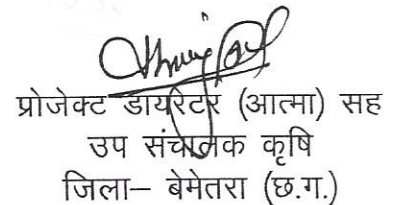 प्रोजेक्ट डायरेटर (आत्मा) सह
उप संचालक कृषि
जिला– बेमेतरा (छ.ग.)